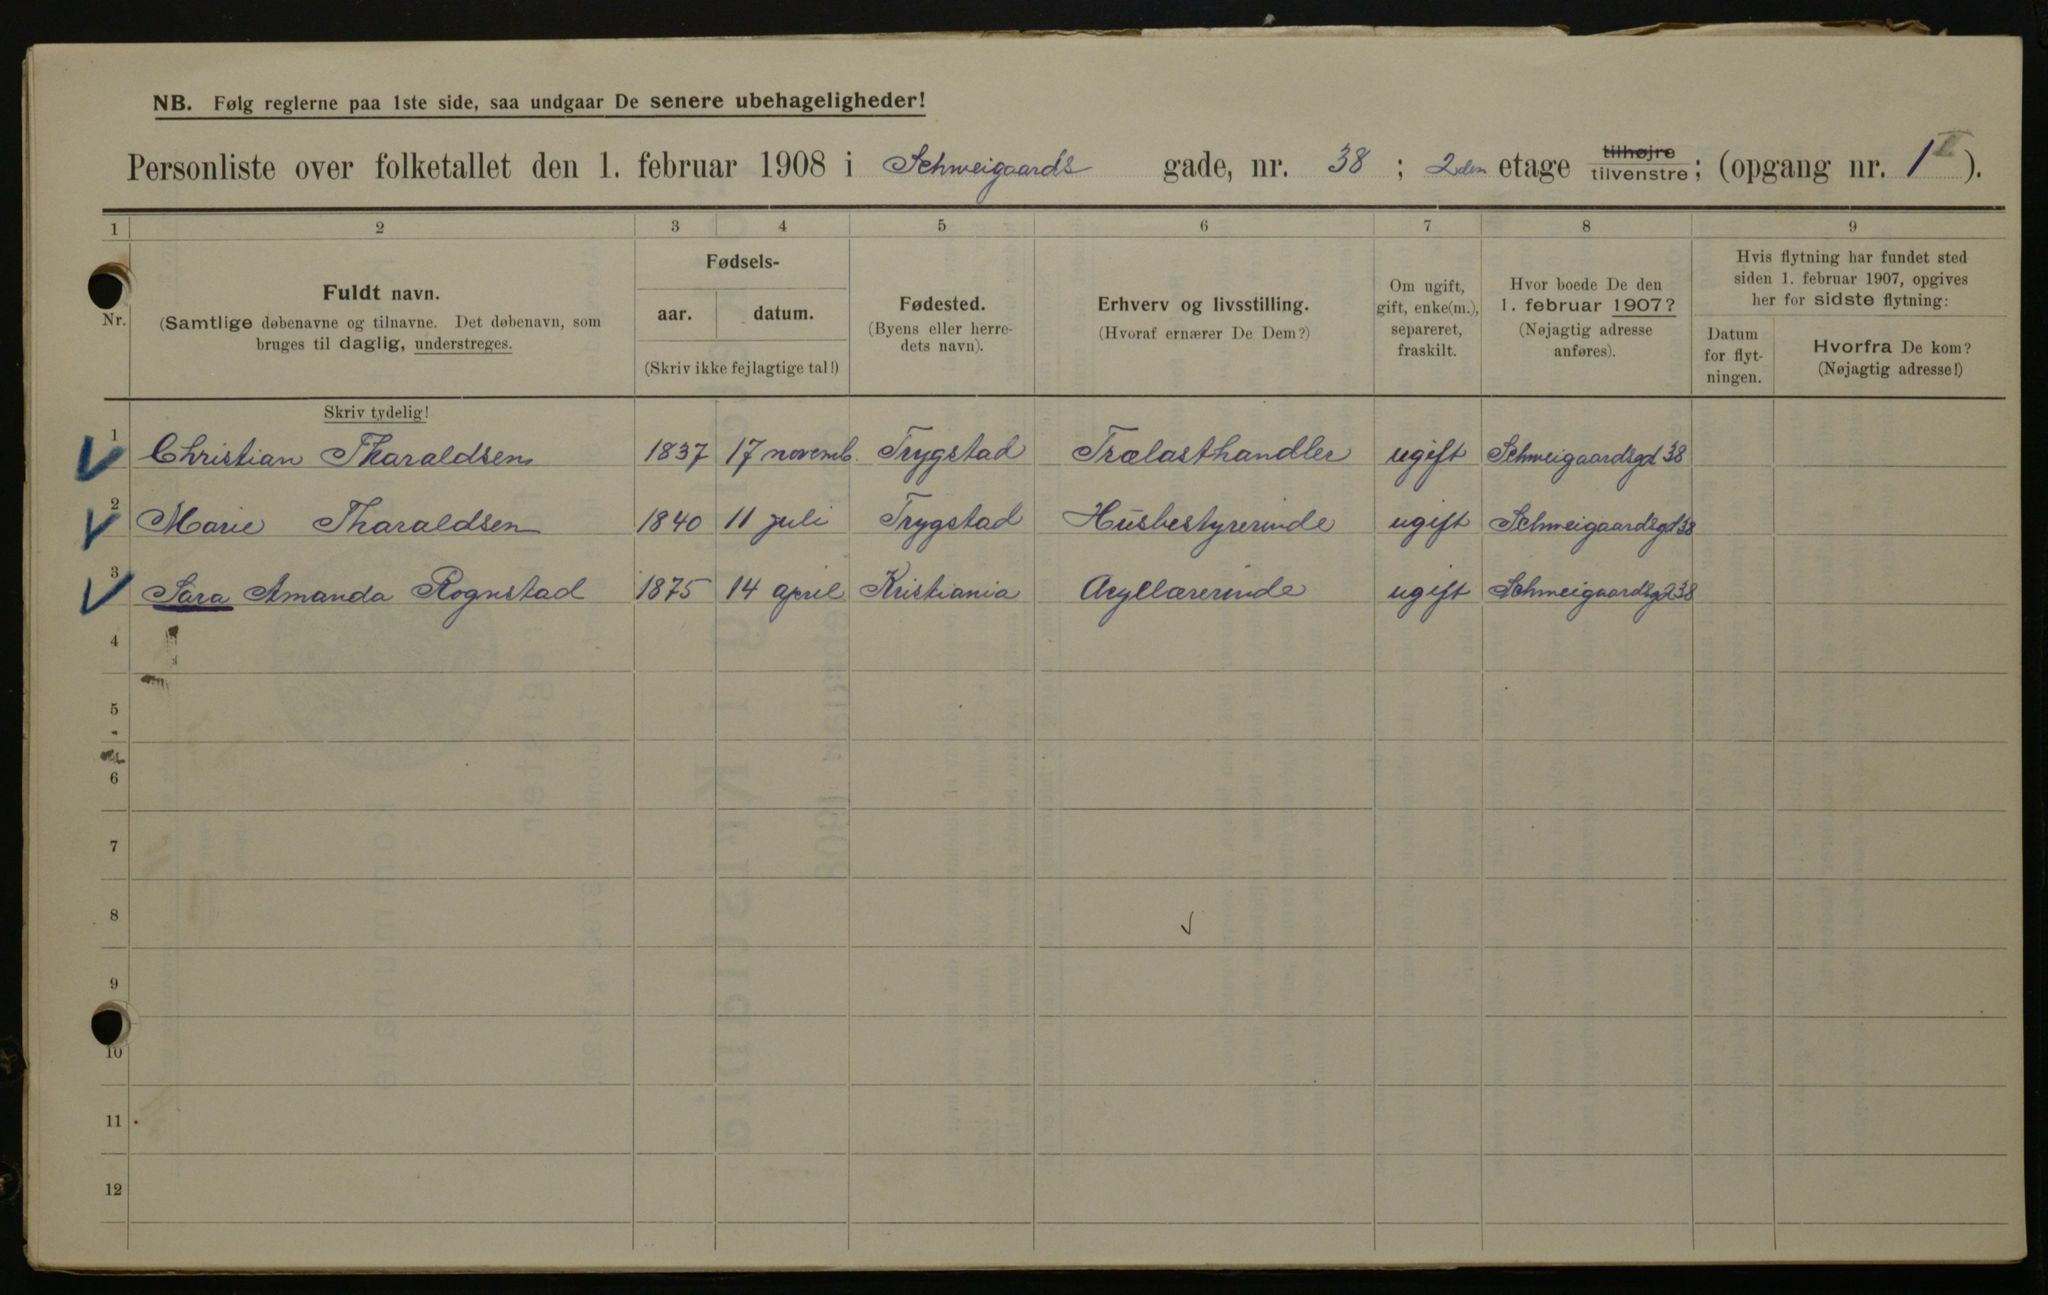 NB. Følg reglerne paa 1ste side, saa undgaar De senere ubehageligheder!
Personliste over folketallet den 1. februar 1908 i Schweigaards gade, nr. 38 ; 2den etage tilhøjre tilvenstre; (opgang nr. 1 I ).
1 2 3 4 5 6 7 8 9
Nr.
Fuldt navn.
(Samtlige døbenavne og tilnavne. Det døbenavn, som
bruges til daglig, understreges.
Fødsels-
aar. datum.
(Skriv ikke fejlagtige tal!)
Fødested.
(Byens eller herre-
dets navn).
Erhverv og livsstilling.
(Hvoraf ernærer De Dem?)
Om ugift,
gift, enke(m.),
separeret,
fraskilt.
Hvor boede De den
1. februar 1907?
(Nøjagtig adresse
anføres).
Hvis flytning har fundet sted
siden 1. februar 1907, opgives
her for sidste flytning:
Datum
for flyt-
ningen.
Hvorfra De kom?
(Nøjagtig adresse!)
Skriv tydelig!
1 Christian Tharaldsen 1837 17 novemb. Trygstad Trælasthandler ugift Schweigaardsgd 38
2 Marie Tharaldsen 1840 11 juli Trygstad Husbestyrerinde ugift Schweigaardsgd 38
3 Sara Amanda Rognstad 1875 14 april Kristiania ugift Schweigaardsgd 38
4
5
6
7
8
9
10
11
12